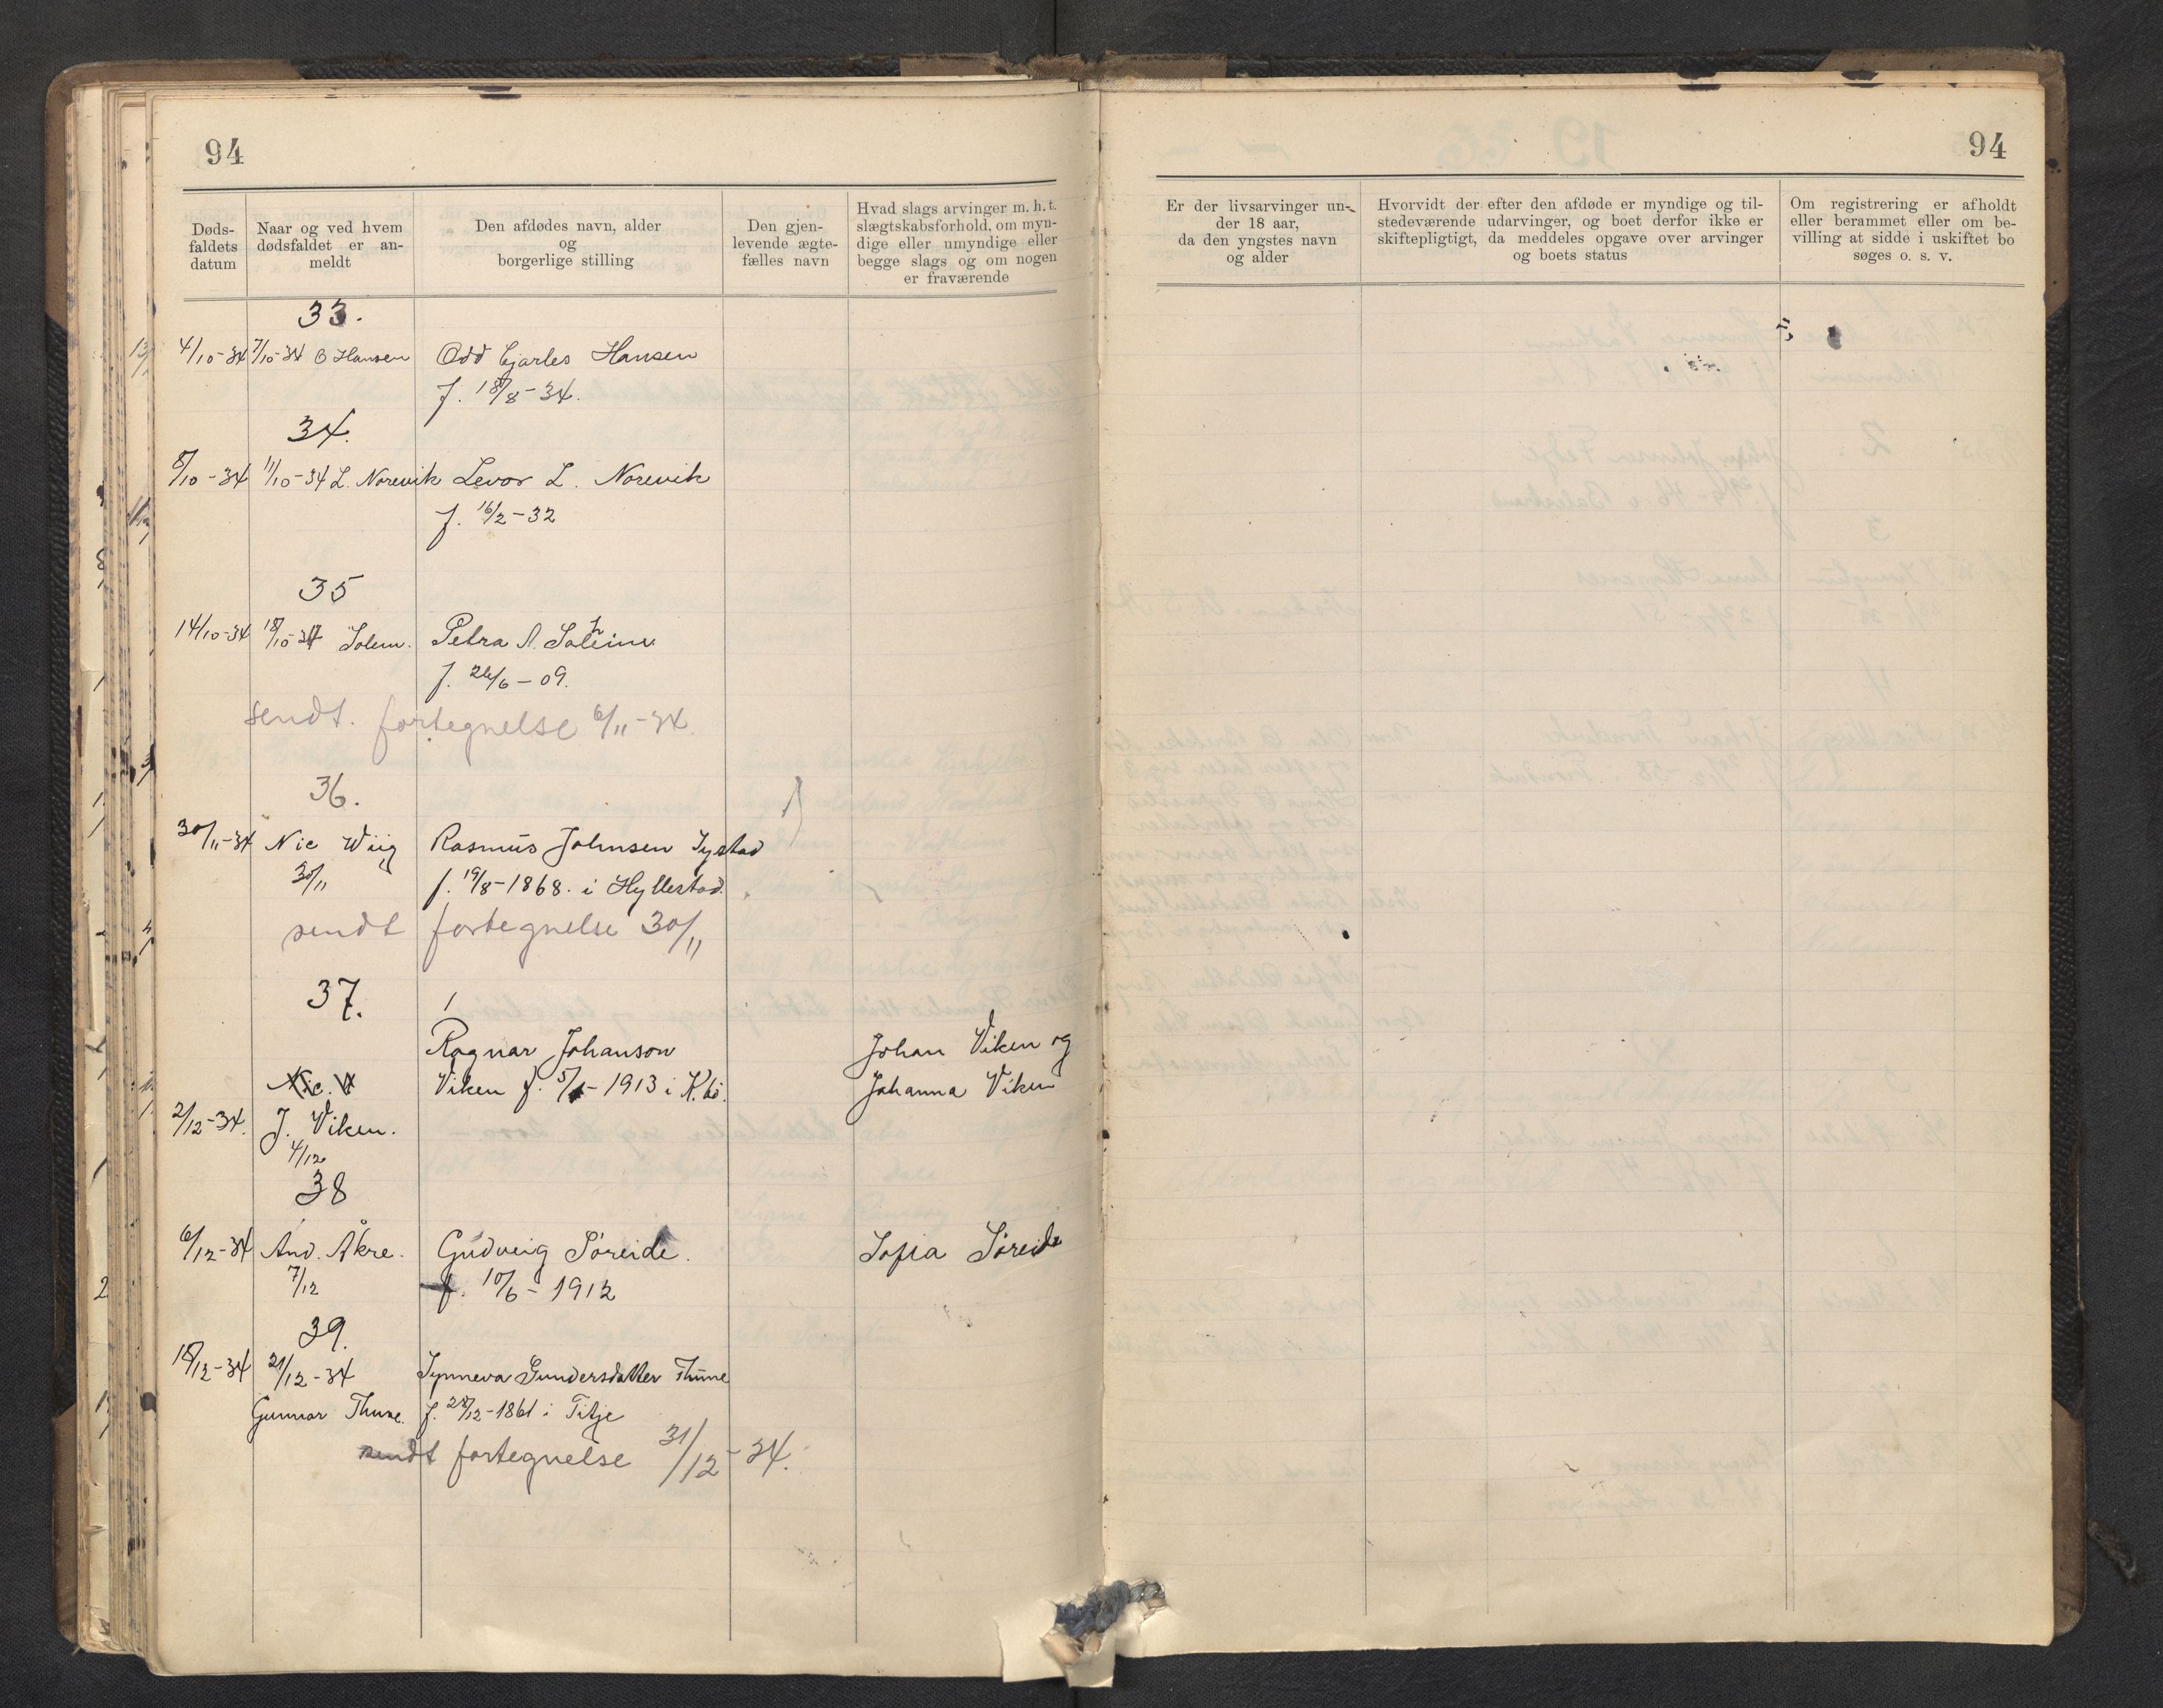 94
Døds-
faldets
datum
Naar og ved hvem
dødsfaldet er an-
meldt
Den afdødes navn, alder
og
borgerlige stilling
Den gjen-
levende ægte-
fælles navn
Hvad slags arvinger m. h. t.
slægtskabsforhold, om myn-
dige eller umyndige eller
begge slags og om nogen
er fraværende
33.
4/10-34 7/10-34 O Hansen Odd Charles Hansen
f. 18/8-34.
34.
8/10-34 11/10-34 L. Norevik Levor L. Norevik
f. 16/2-32
35
14/10-34 18/10-34 Solem. Petra A.
f. 26/6-09.
sendt. fortegnelse 6/11-34.
36.
30/11-34 Nic Wiig Rasmus Johnsen Systad
30/11 f. 19/8-1868. i Hyllestad.
sendt fortegnelse 30/11
37.
Ragnar Johanson Johan Viken og
Nic. W Viken f. 5/1-1913 i K.bö. Johanna Viken
2/12-34. J. Viken.
4/12
38
6/12-34 And. Åkre. Gudveig Söreide. Sofia Söreide
7/12 f. 10/6-1912
39.
18/12-34 21/12-34 Synneva Gundersdatter Thune
Gunnar Thune. f. 28/12-1861 i Titje
sendt fortegnelse 31/12-34.
94
Er der livsarvinger un-
der 18 aar,
da den yngstes navn
og alder
Hvorvidt der efter den afdøde er myndige og til-
stedeværende udarvinger, og boet derfor ikke er
skiftepligtigt, da meddeles opgave over arvinger
og boets status
Om registrering er afholdt
eller berammet eller om be-
villing at sidde i uskiftet bo
søges o. s. v.